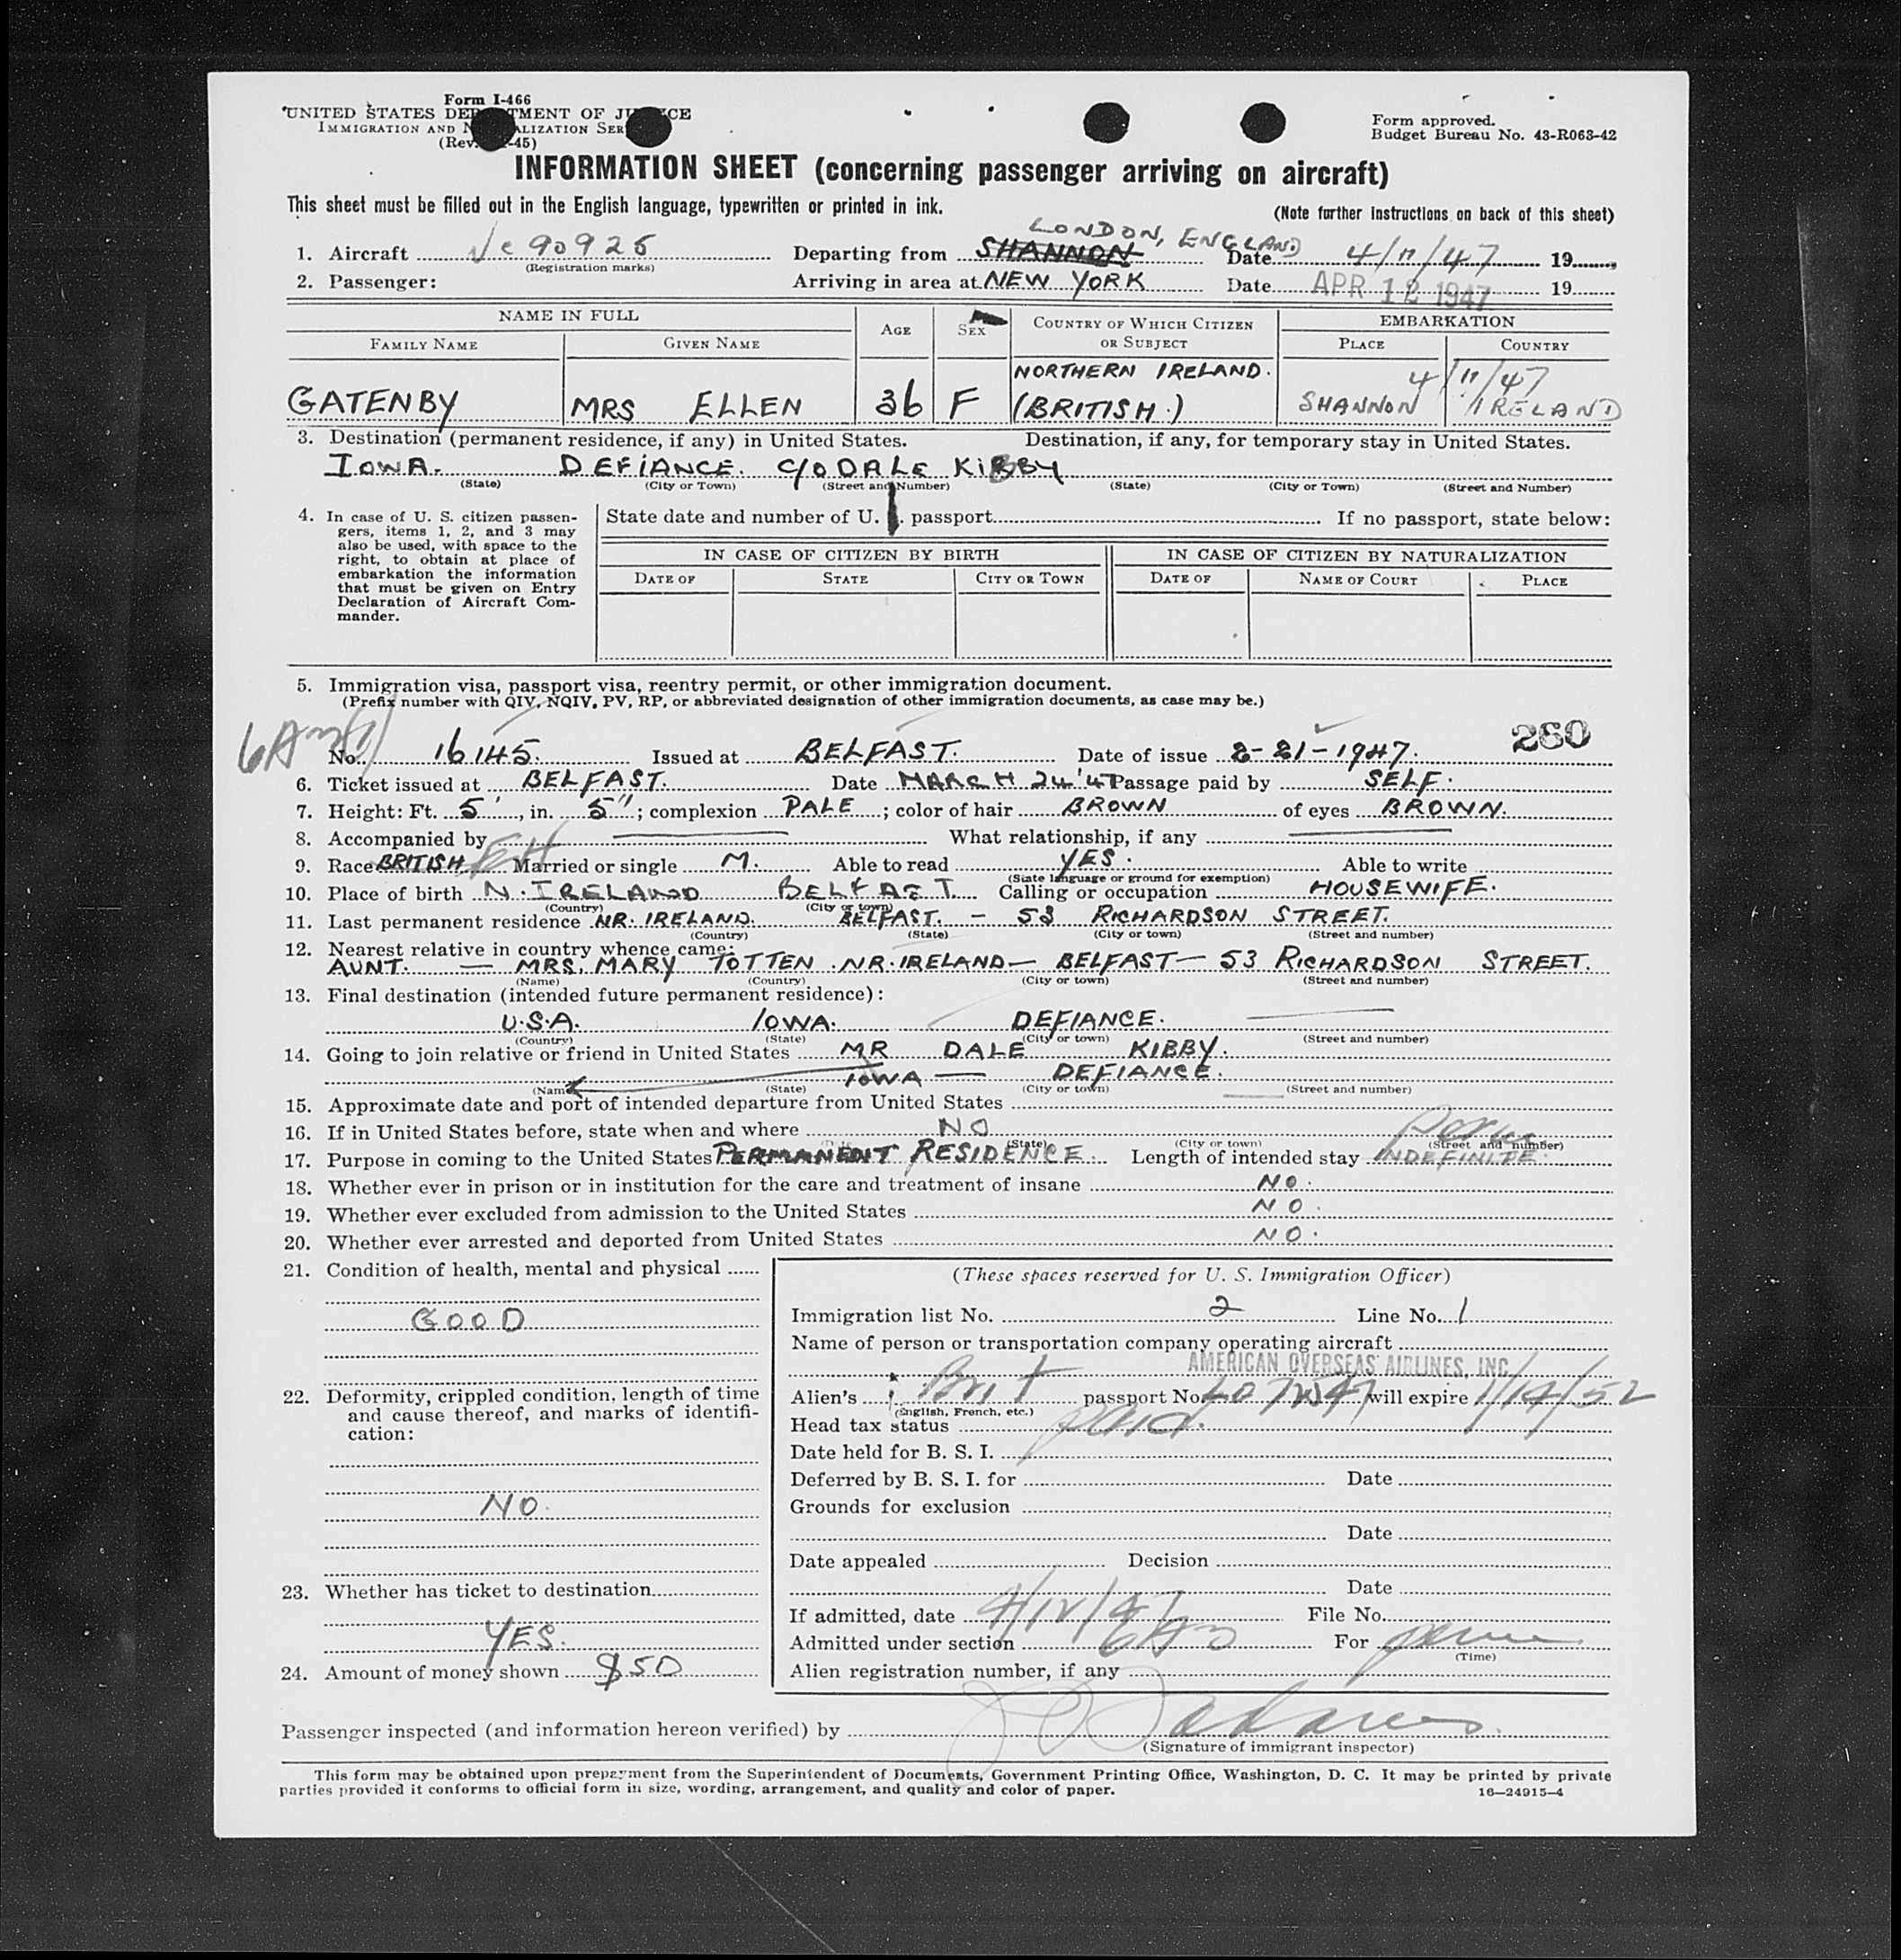 Form I-466
UNITED STATES DEPARTMENT OF JUSTICE
IMMIGRATION AND NATURALIZATION SERVICE
(Rev. -45)
Form approved.
Budget Bureau No. 43-R063-42
INFORMATION SHEET (concerning passenger arriving on aircraft)
This sheet must be filled out in the English language, typewritten or printed in ink.
(Note further instructions on back of this sheet)
LONDON, ENGLAND
1. Aircraft Nc 90925 Departing from SHANNON Date 4/11/47 19
(Registration marks)
2. Passenger: Arriving in area at NEW YORK Date APR 12 1947 19
NAME IN FULL AGE SEX COUNTRY OF WHICH CITIZEN OR SUBJECT EMBARKATION
FAMILY NAME GIVEN NAME PLACE COUNTRY
NORTHERN IRELAND. 4/11/47
GATENBY MRS ELLEN 36 F (BRITISH.) SHANNON IRELAND
3. Destination (permanent residence, if any) in United States. Destination, if any, for temporary stay in United States.
IOWA. DEFIANCE. C/O DALE KIBBY
(State) (City or Town) (Street and Number) (State) (City or Town) (Street and Number)
4. In case of U. S. citizen passen-
gers, items 1, 2, and 3 may
also be used, with space to the
right, to obtain at place of
embarkation the information
that must be given on Entry
Declaration of Aircraft Com-
mander.
State date and number of U. S. passport If no passport, state below:
IN CASE OF CITIZEN BY BIRTH IN CASE OF CITIZEN BY NATURALIZATION
DATE OF STATE CITY OR TOWN DATE OF NAME OF COURT PLACE
5. Immigration visa, passport visa, reentry permit, or other immigration document.
(Prefix number with QIV, NQIV, PV, RP, or abbreviated designation of other immigration documents, as case may be.)
260
No. 16145. Issued at BELFAST. Date of issue 2-21-1947.
6. Ticket issued at BELFAST. Date MARCH 24 '47 Passage paid by SELF.
7. Height: Ft. 5', in. 5"; complexion PALE; color of hair BROWN of eyes BROWN.
8. Accompanied by What relationship, if any
9. Race BRITISH Married or single M. Able to read YES. Able to write
(State language or ground for exemption)
10. Place of birth N. IRELAND BELFAST Calling or occupation HOUSEWIFE.
(Country) (City or town)
11. Last permanent residence NR. IRELAND. BELFAST. - 53 RICHARDSON STREET.
(Country) (State) (City or town) (Street and number)
12. Nearest relative in country whence came:
AUNT. — MRS. MARY TOTTEN. NR. IRELAND — BELFAST — 53 RICHARDSON STREET.
(Name) (Country) (City or town) (Street and number)
13. Final destination (intended future permanent residence):
U.S.A. IOWA. DEFIANCE.
(Country) (State) (City or town) (Street and number)
14. Going to join relative or friend in United States MR DALE KIBBY.
IOWA — DEFIANCE.
(Name) (State) (City or town) (Street and number)
15. Approximate date and port of intended departure from United States
16. If in United States before, state when and where NO
(State) (City or town) (Street and number)
17. Purpose in coming to the United States PERMANENT RESIDENCE. Length of intended stay INDEFINITE.
18. Whether ever in prison or in institution for the care and treatment of insane NO.
19. Whether ever excluded from admission to the United States NO.
20. Whether ever arrested and deported from United States NO.
21. Condition of health, mental and physical
GOOD
22. Deformity, crippled condition, length of time
and cause thereof, and marks of identifi-
cation:
NO.
23. Whether has ticket to destination
YES.
24. Amount of money shown $50
(These spaces reserved for U. S. Immigration Officer)
Immigration list No. 2 Line No. 1
Name of person or transportation company operating aircraft
AMERICAN OVERSEAS AIRLINES, INC.
Alien's Brit passport No. will expire 1/14/52
(English, French, etc.)
Head tax status paid.
Date held for B. S. I.
Deferred by B. S. I. for Date
Grounds for exclusion
Date
Date appealed Decision
Date
If admitted, date 4/12/47 File No.
Admitted under section 6A3 For perm
(Time)
Alien registration number, if any
Passenger inspected (and information hereon verified) by
(Signature of immigrant inspector)
This form may be obtained upon prepayment from the Superintendent of Documents, Government Printing Office, Washington, D. C. It may be printed by private
parties provided it conforms to official form in size, wording, arrangement, and quality and color of paper.
16—24915-4